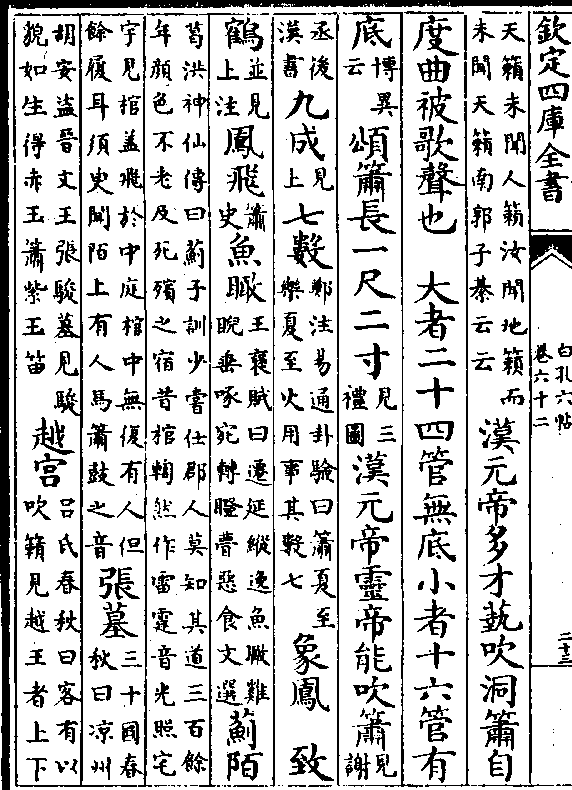 欽定四庫全書
白孔六帖
卷六十二
二十三
天籟未聞人籟汝聞地籟而未聞天籟南郭子綦云云漢元帝多才藝吹洞簫自
度曲被歌聲也　大者二十四管無底小者十六管有
底博異云頌簫長一尺二寸見三禮圖漢元帝靈帝能吹簫見謝
丞後漢書九成見上七數鄭注易通卦驗曰簫夏至樂夏至火用事其數七象鳳　致
鶴並見上注鳳飛簫史魚瞰王褒賦曰遷延縱逸魚瞰雞睨垂啄宛轉瞪瞢惡食文選薊陌
葛洪神仙傳曰薊子訓少嘗仕郡人莫知其道三百餘年顔色不老及死殯之宿昔棺輷然作雷霆音光照宅
宇見棺蓋飛於中庭棺中無復有人但餘履耳須臾聞陌上有人馬簫鼓之音張墓三十國春秋曰涼州
胡安盜晉文王張駿墓見駿貌如生得赤玉簫紫玉笛越宮呂氏春秋曰客有以吹籟見越王者上下